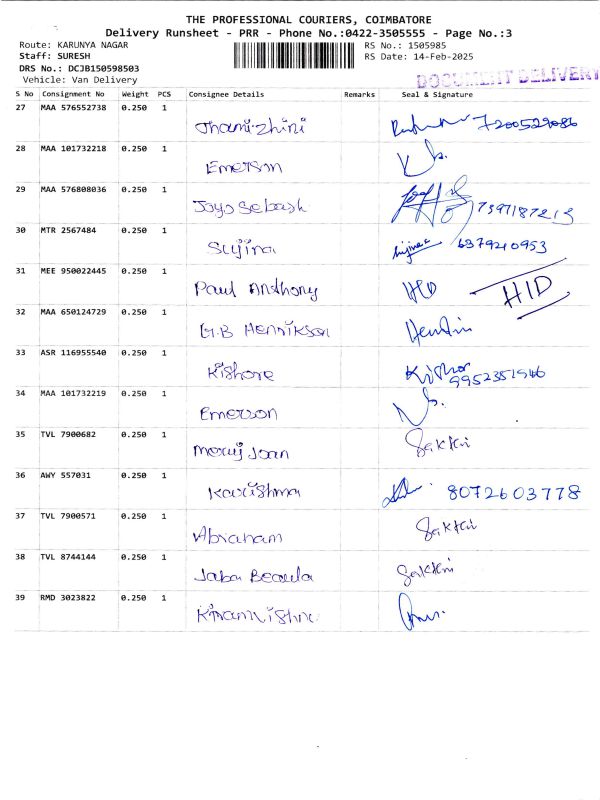 THE PROFESSIONAL COURIERS, COIMBATORE
Delivery Runsheet - PRR - Phone No.:0422-3505555 - Page No.:3
Route: KARUNYA NAGAR RS No.: 1505985
Staff: SURESH RS Date: 14-Feb-2025
DRS No.: DCJB150598503
Vehicle: Van Delivery
DOCUMENT DELIVERY
S No Consignment No Weight PCS Consignee Details Remarks Seal & Signature
27 MAA 576552738 0.250 1
Thamizhini 7200529086
28 MAA 101732218 0.250 1
Emerson
29 MAA 576808036 0.250 1
Joyo Sebash 7397187213
30 MTR 2567484 0.250 1
Sujina 6379210953
31 MEE 950022445 0.250 1
Paul Anthony HD HID
32 MAA 650124729 0.250 1
G.B Hennikson
33 ASR 116955540 0.250 1
Kishore Kishor
9952351946
34 MAA 101732219 0.250 1
Emerson
35 TVL 7900682 0.250 1
Joan Sakthi
36 AWY 557031 0.250 1
Karishma 8072603778
37 TVL 7900571 0.250 1
Abraham Sakthi
38 TVL 8744144 0.250 1
Jaba Beaula Sakthi
39 RMD 3023822 0.250 1